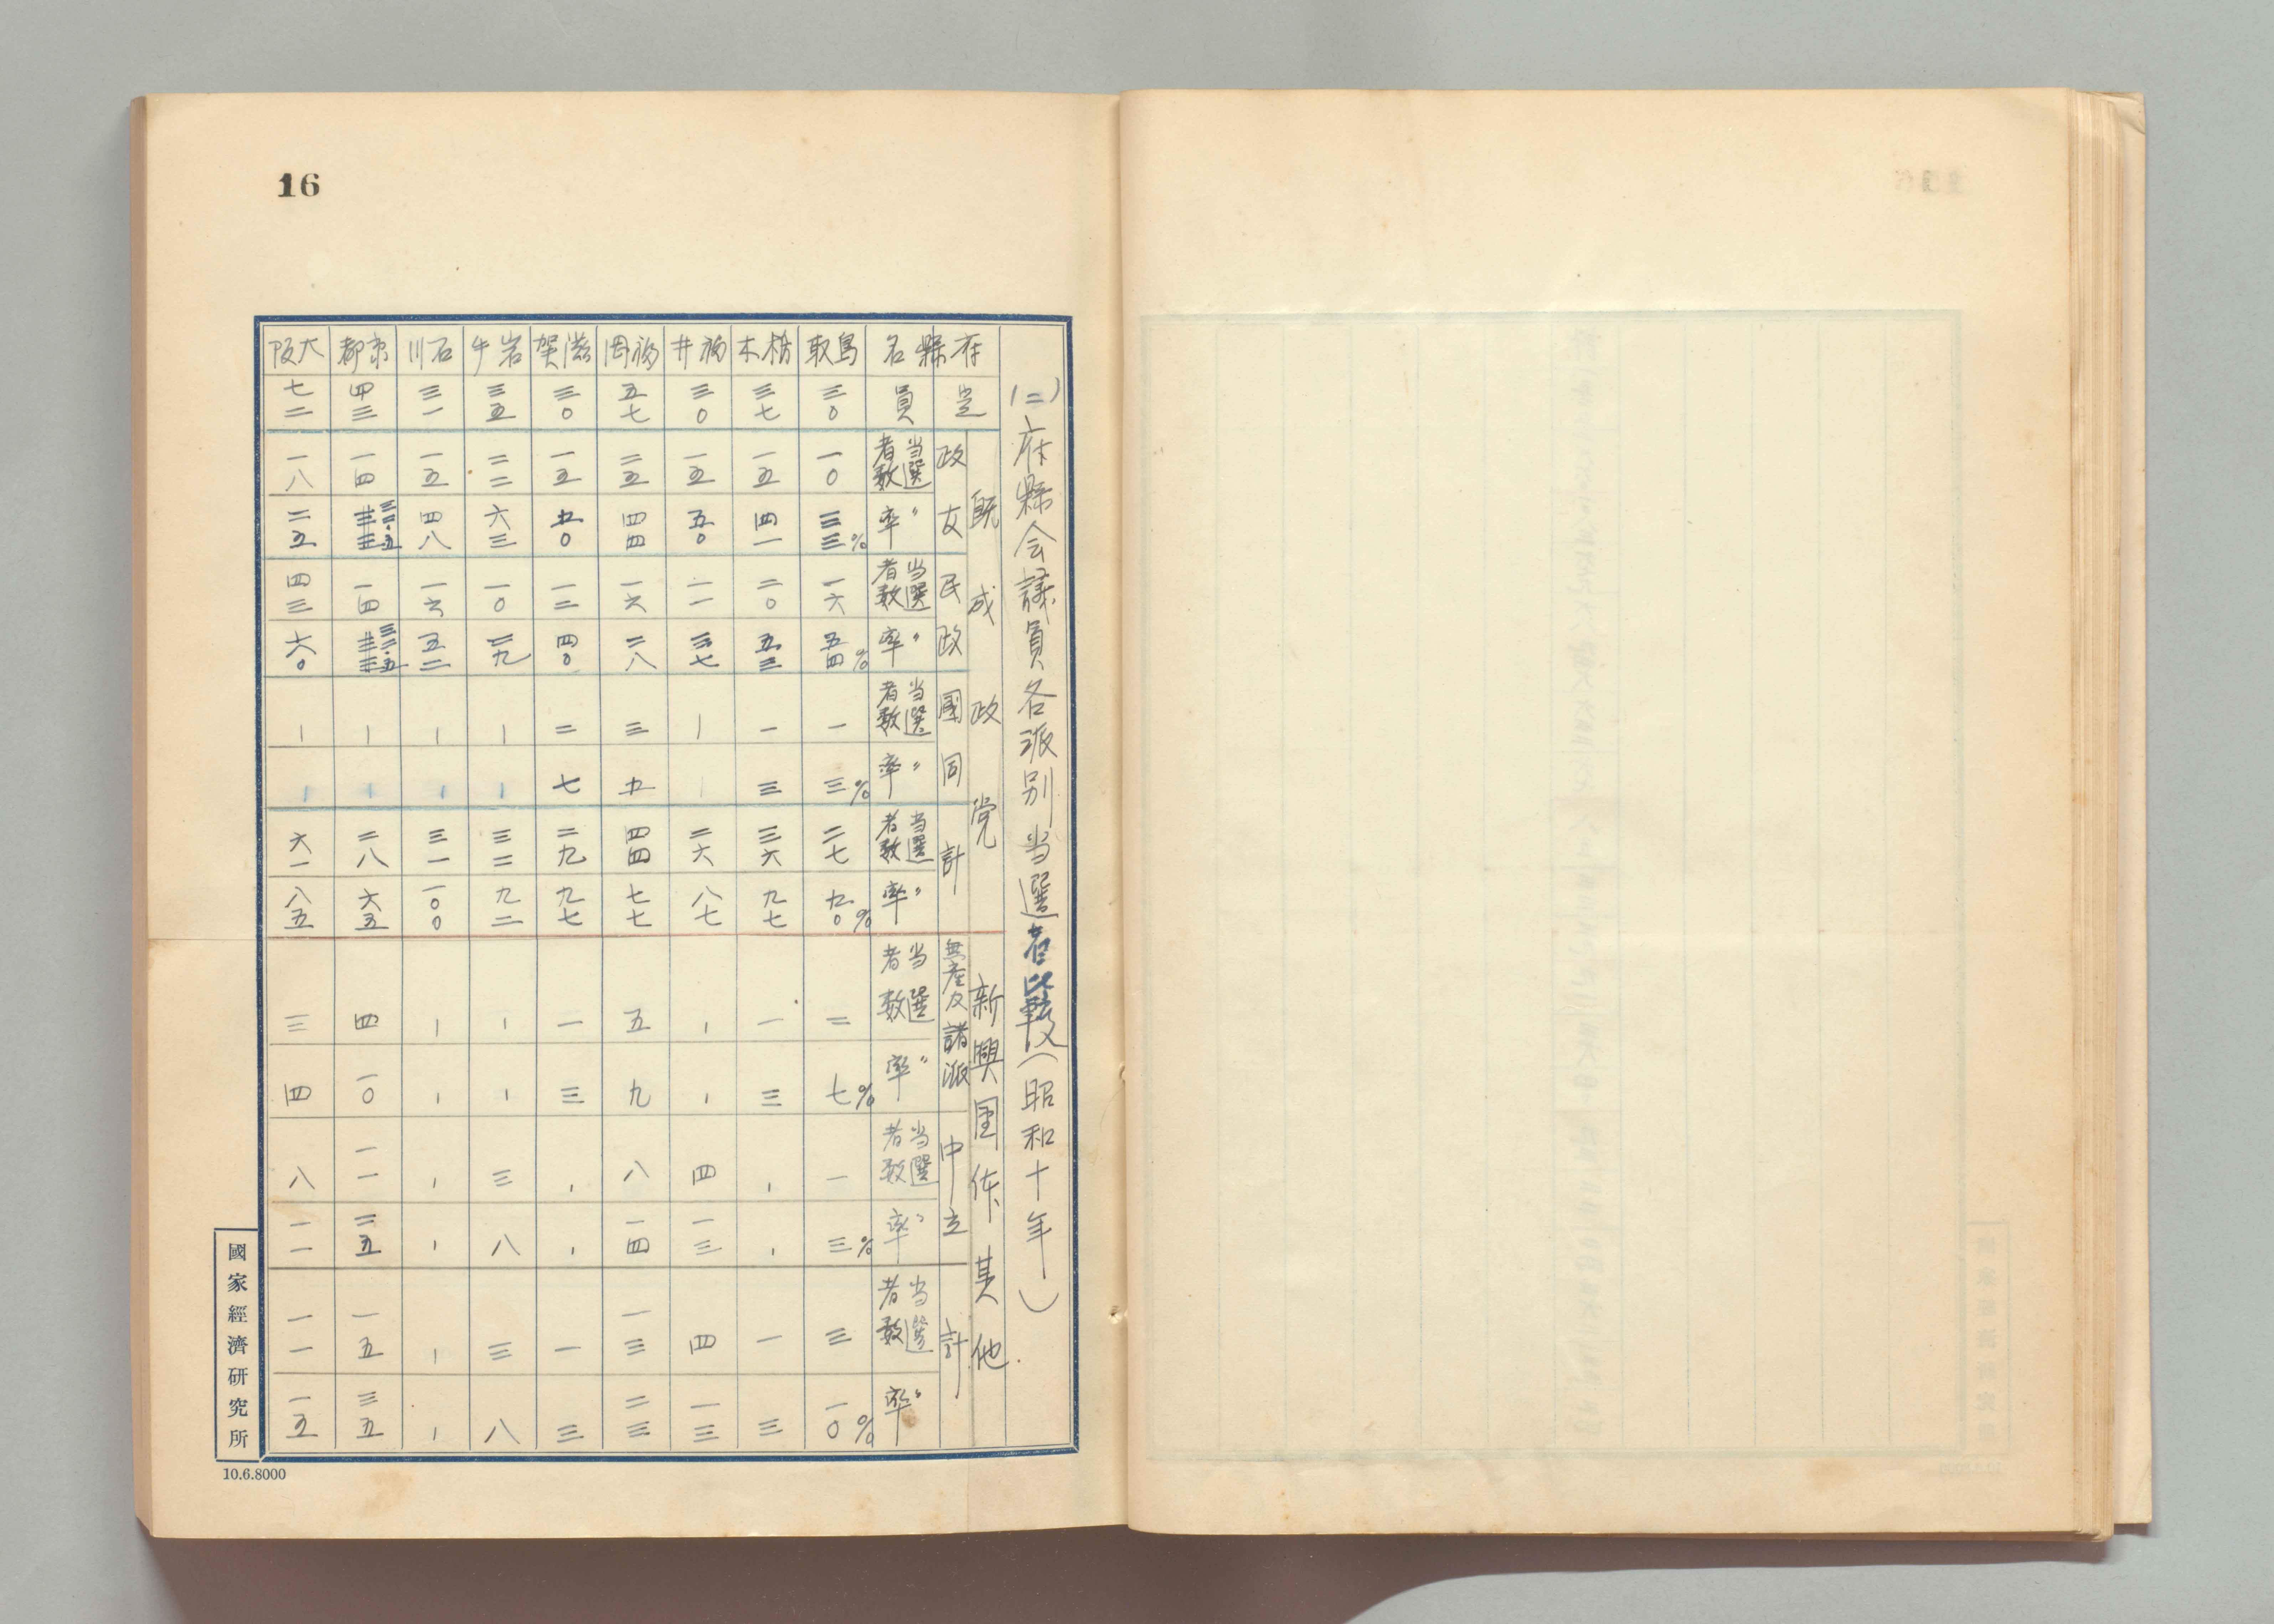 16
(二)府縣会議員各派別当選者比較(昭和十年)
既成政党 新興団体其他
府縣名 定員
政友 民政 國同 計 無産及諸派 中立 計
当選者数 〃率 当選者数 〃率 当選者数 〃率 当選者数 〃率 当選者数 〃率 当選者数 〃率 当選者数 〃率
鳥取 三〇 一〇 三三% 一六 五四% 一 三% 二七 九〇% 二 七% 一 三% 三 一〇%
栃木 三七 一五 四一 二〇 五三 一 三 三六 九七 一 三 | | 一 三
福井 三〇 一五 五〇 一一 三七 | | 二六 八七 | | 四 一三 四 一三
福岡 五七 二五 四四 一六 二八 三 五 四四 七七 五 九 八 一四 一三 二三
滋賀 三〇 一五 五〇 一二 四〇 二 七 二九 九七 一 三 | | 一 三
岩手 三五 二二 六三 一〇 二九 | | 三二 九二 | | 三 八 三 八
石川 三一 一五 四八 一六 五二 | | 三一 一〇〇 | | | | | |
京都 四三 一四 三二・五 一四 三二・五 | | 二八 六五 四 一〇 一一 二五 一五 三五
大阪 七二 一八 二五 四三 六〇 | | 六一 八五 三 四 八 一一 一一 一五
國家經濟研究所
10.6.8000